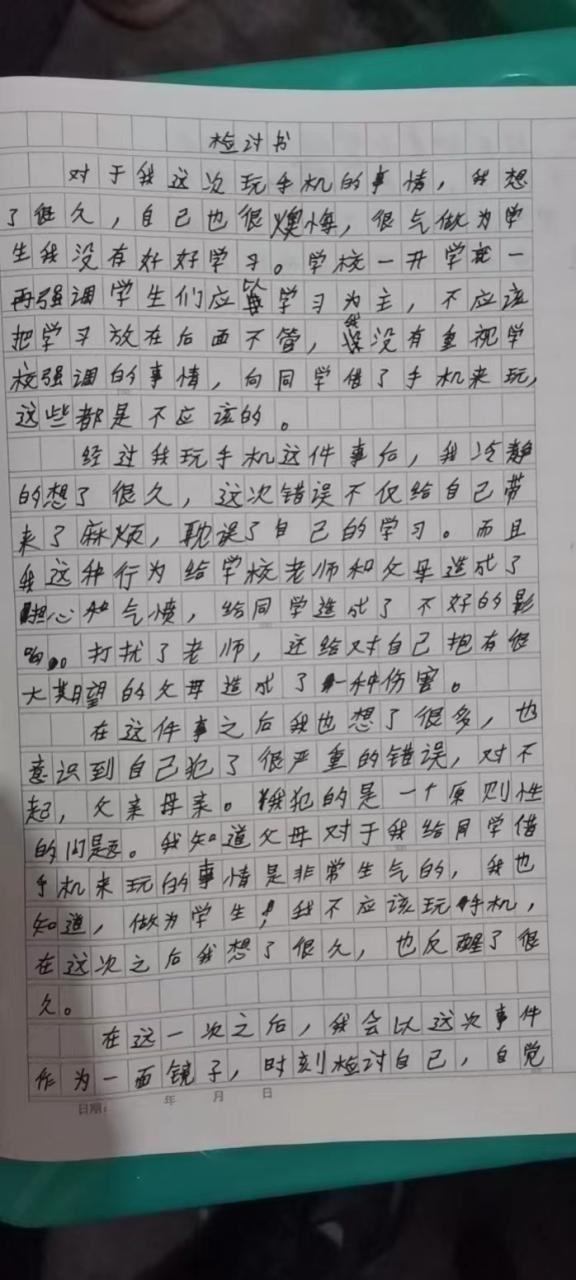 检讨书
对于我这次玩手机的事情，我想
了很久，自己也很懊悔，很气做为学
生我没有好好学习。学校一开学就一
再强调学生们应该学习为主，不应该
把学习放在后面不管，我没有重视学
校强调的事情，向同学借了手机来玩，
这些都是不应该的。
经过我玩手机这件事后，我冷静
的想了很久，这次错误不仅给自己带
来了麻烦，耽误了自己的学习。而且
我这种行为给学校老师和父母造成了
担心和气愤，给同学造成了不好的影
响。打扰了老师，还给对自己抱有很
大期望的父母造成了一种伤害。
在这件事之后我也想了很多，也
意识到自己犯了很严重的错误，对不
起，父亲母亲。我犯的是一个原则性
的问题。我知道父母对于我给同学借
手机来玩的事情是非常生气的，我也
知道，做为学生，我不应该玩手机，
在这次之后我想了很久，也反醒了很
久。
在这一次之后，我会以这次事件
作为一面镜子，时刻检讨自己，自觉
日期： 年 月 日